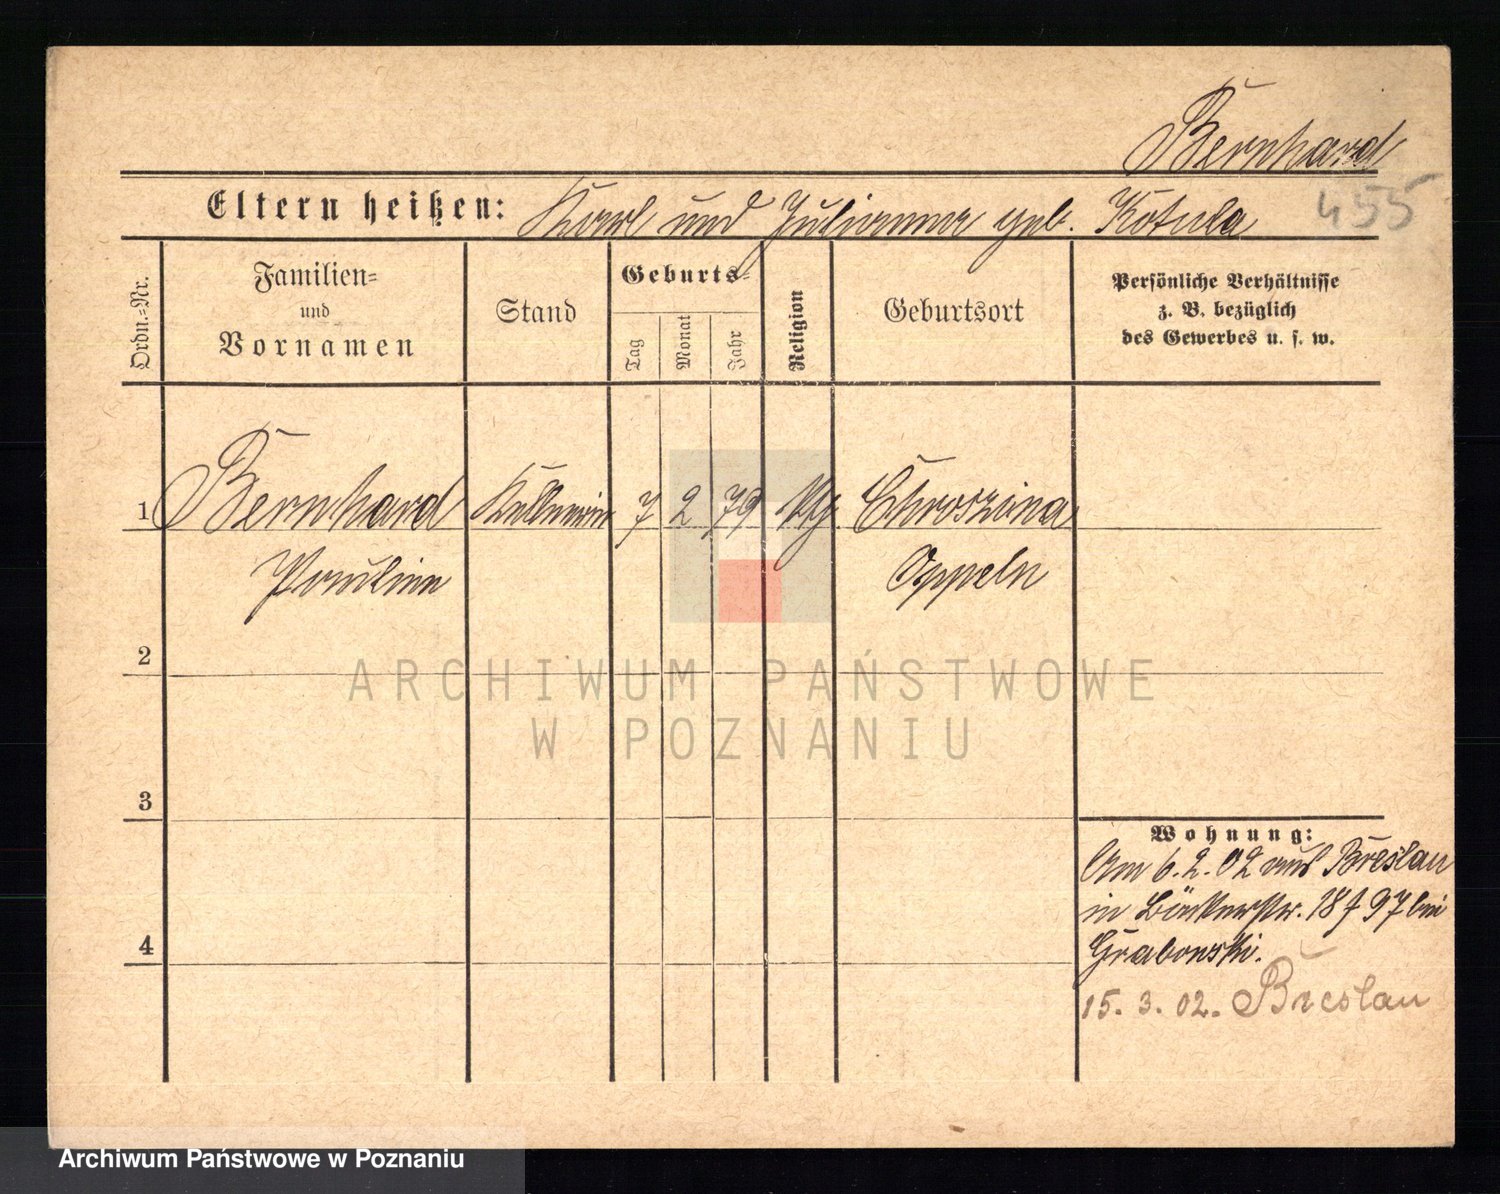 Bernhard
455
Eltern heißen: Karl und Julianna geb. Kotula
Ordn.-Nr.
Familien-
und
Vornamen
Stand
Geburts-
Tag
Monat
Jahr
Religion
Geburtsort
Persönliche Verhältnisse
z. B. bezüglich
des Gewerbes u. s. w.
1 Bernhard Kellnerin 7 2 79 Chroszina
Pauline Oppeln
2
3
4
Wohnung:
Am 6.2.02 aus Breslau
in Bäckerstr. 18 f 97 bei
Grabowski.
15. 3. 02. Breslau
ARCHIWUM PAŃSTWOWE
W POZNANIU
Archiwum Państwowe w Poznaniu